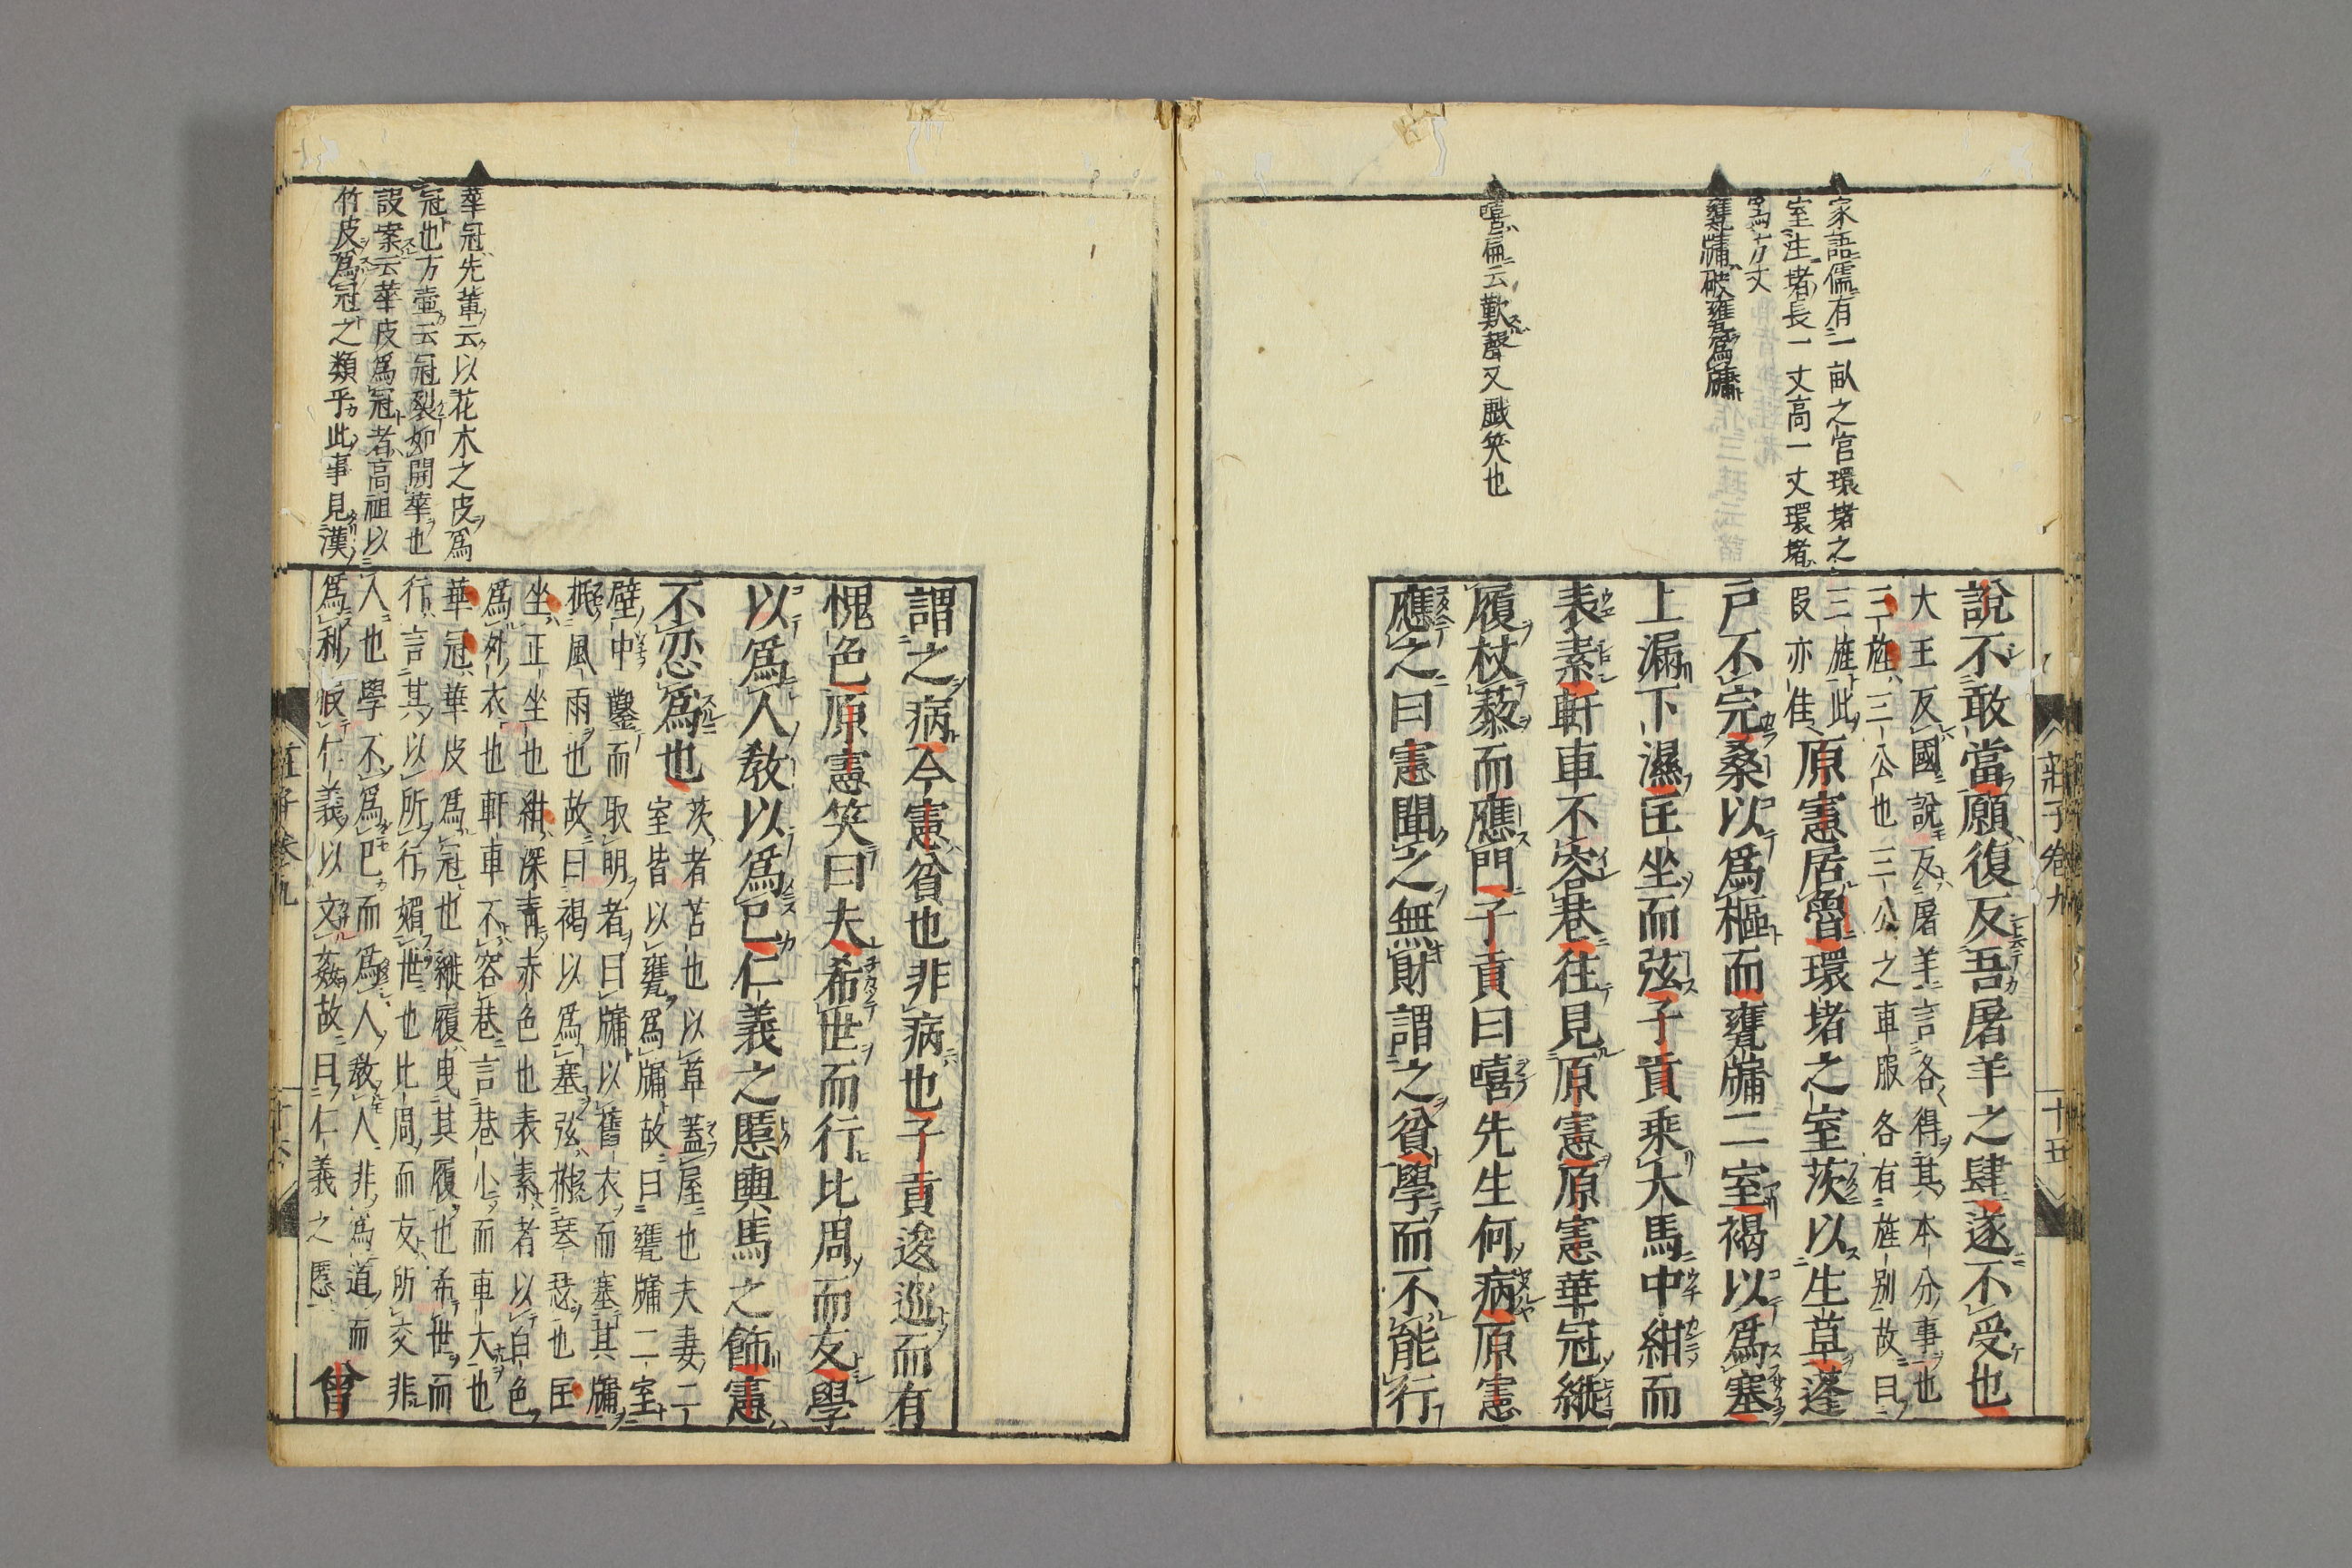 家語儒有一畝之宮環堵之
室注堵長一丈高一丈環堵
爲方丈
甕牖破甕爲牖
嘻篇云歎聲又戯笑也
莊子卷九 十五
說不敢當願復反吾屠羊之肆遂不受也
大王反國說反屠羊言各得其本分事也
三旌三公也三公之車服各有旌別故曰
三旌此
叚亦佳
原憲居魯環堵之室茨以生草蓬
戶不完桑以爲樞而甕牖二室褐以爲塞
上漏下濕匡坐而弦子貢乘大馬中紺而
表素軒車不容巷往見原憲原憲華冠縰
履杖藜而應門子貢曰嘻先生何病原憲
應之曰憲聞之無財謂之貧學而不能行
華冠先輩云以花木之皮爲
冠也方壷云冠裂如開華也
設案云華皮爲冠者高祖以
竹皮爲冠之類乎此事見漢
謂之病今憲貧也非病也子貢逡巡而有
愧色原憲笑曰夫希世而行比周而友學
以爲人敎以爲已仁義之慝輿馬之飾憲
不忍爲也
茨者苫也以草蓋屋也夫妻二
室皆以甕爲牖故曰甕牖二室
壁中鑿而取明者曰牖以舊衣而塞其牖
抵風雨也故曰褐以爲塞弦撫琴瑟也匡
坐正坐也紺深青赤色也表素者以白色
爲外衣也軒車不容巷言巷小而車大也
華冠華皮爲冠也縰履曳其履也希世而
行言其以所行媚世也比周而友所交非
人也學不爲已而爲人敎人非爲道而
爲利假仁義以文姦故曰仁義之慝
曾
莊子卷九 十六